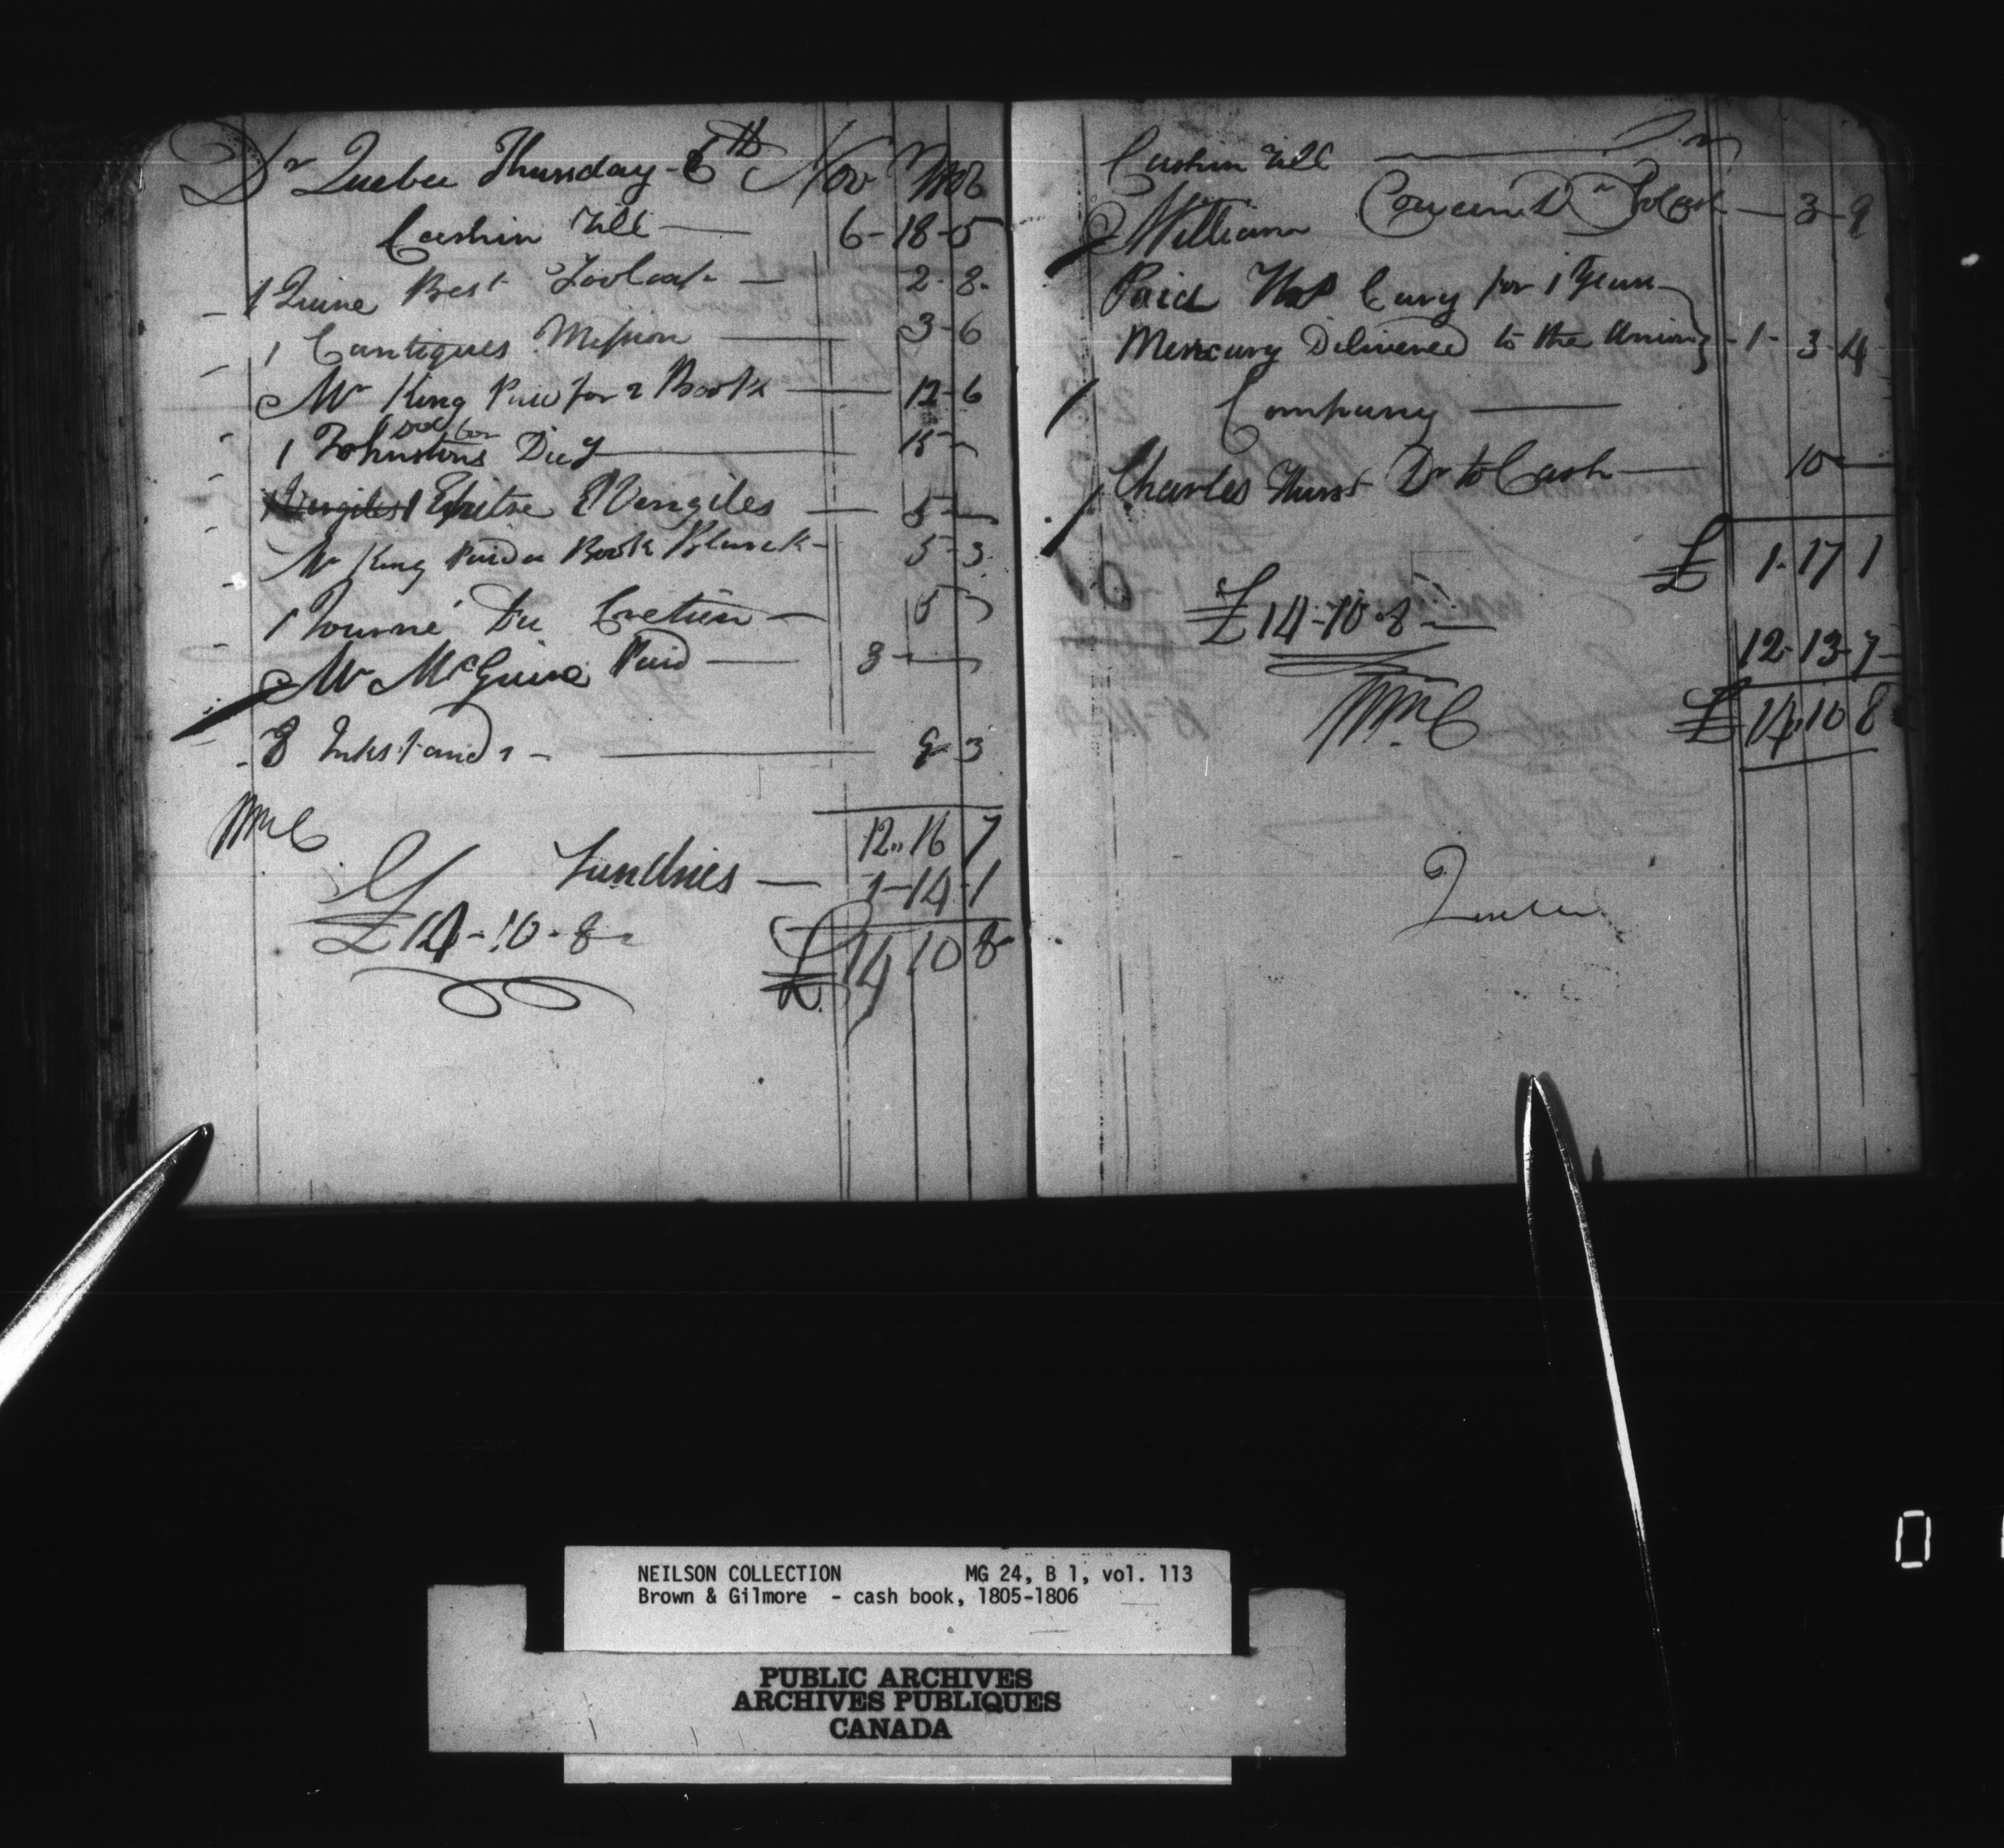 Dr Quebec Thursday 6th Nov 1806
Cash in Till — 6-18-5
1 Quire Best Foolcap — 2-8
1 Cantiques Mission — 3-6
Mr King Paid for 2 Books — 12-6
sol for
1 Johnstons Dicy — 15 -
1 Epitre EVengiles — 5 -
Mr King Paid a Book Blank - 5-3
1 Journé Du Cretien — 5
Mr McGuire Paid — 3 -
3 Inkstands - — 9-3
WmC
12..16 7
Sundries — 1-14-1
£14-10-8
£ 14 10 8
Cash in Till — Cr
William Dr to Cash — 3-9
Paid Thos Cary for 1 Years
Mercury Delivered to the Union - 1-3-4
Company —
Charles Hurst Dr to Cash — 10 -
£ 1-17 1
£14-10-8
12-13-7
WmC
£ 14 10 8
Quebec
NEILSON COLLECTION MG 24, B 1, vol. 113
Brown & Gilmore - cash book, 1805-1806
PUBLIC ARCHIVES
ARCHIVES PUBLIQUES
CANADA
0